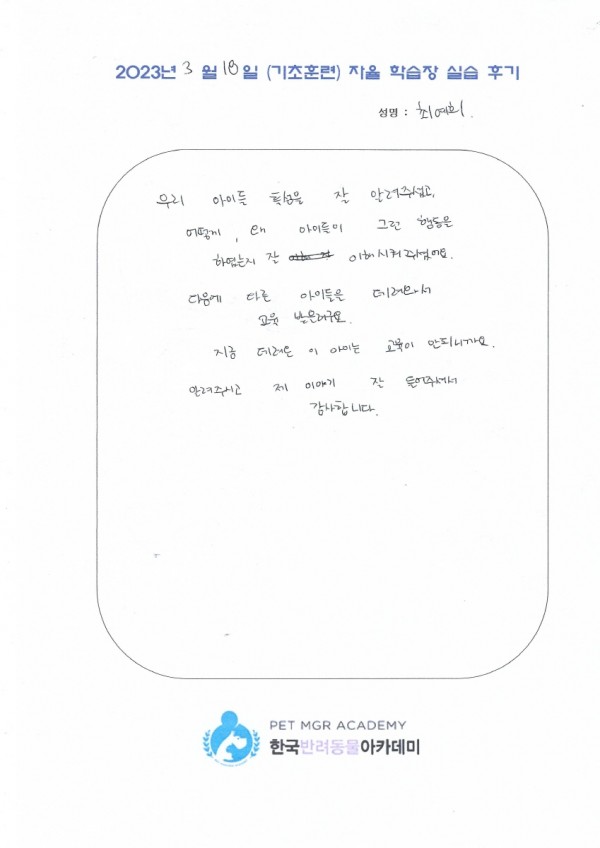 2023년 3월 18일 (기초훈련) 자율 학습장 실습 후기
성명 : 최예희.
우리 아이들 특성을 잘 알려주셨고,
어떻게, 왜 아이들이 그런 행동을
하였는지 잘 이해시켜 주셨어요.
다음에 다른 아이들을 데려와서
교육 받을려구요.
지금 데려온 이 아이는 교육이 안되니까요.
알려주시고 제 이야기 잘 들어주셔서
감사합니다.
PET MGR ACADEMY
한국반려동물아카데미